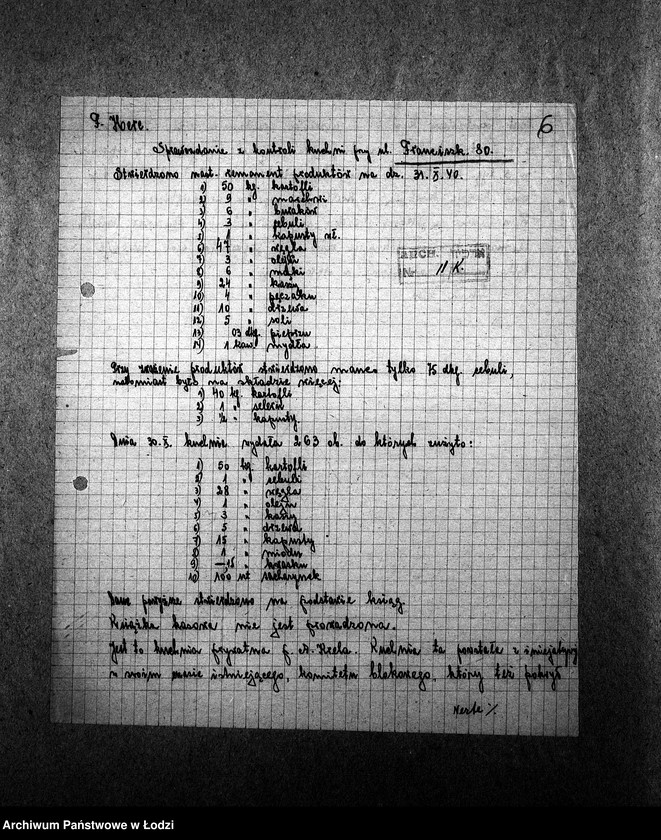 P. Herc. 6
Sprawozdanie z kontroli kuchni przy ul. Franciszk. 30.
Stwierdzono nast. remanent produktów na dz. 31.X.40.
1) 50 kg. kartofli
2) 9 " marchwi
3) 6 " buraków
4) 3 " cebuli
5) 1 " kapusty
6) 47 " węgla
7) 3 " oleju
8) 6 " mąki
9) 24 " kaszy
10) 4 " pęczaku
11) 10 " drzewa
12) 5 " soli
13) 03 dkg. pieprzu
14) 1 kaw. mydła
ARCH.
Nr. 11 K.
Przy produktów stwierdzono manco tylko 75 dkg. cebuli,
natomiast było na składzie więcej:
1) 40 kg. kartofli
2) 1 " selera
3) ½ " kapusty.
Dnia 30.X. kuchnia wydała 263 ob. do których zużyto:
1) 50 kg. kartofli
2) 1 " cebuli
3) 28 " węgla
4) 1 " oleju
5) 3 " kaszy
6) 5 " drzewa
7) 15 " kapusty
8) 1 " miodu
9) —,15 " kwasku
10) 100 szt sacharynek
Dane powyższe stwierdzono na podstawie ksiąg.
Książka kasowa nie jest prowadzona.
Jest to kuchnia prywatna p. A. Kzela. Kuchnia ta powstała z inicjatywy
w swoim czasie istniejącego, komitetu blokowego, który też pokrył
verte ⁒
Archiwum Państwowe w Łodzi